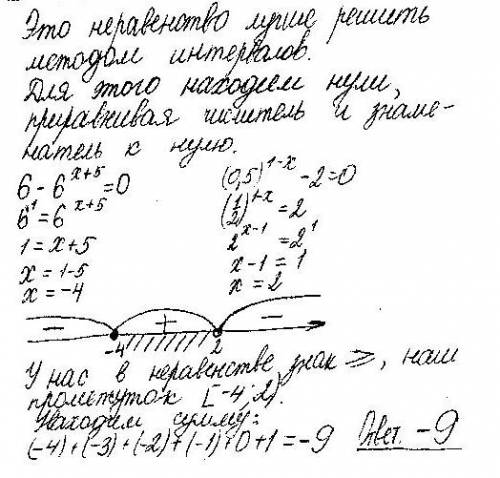 Это неравенство лучше решить
методом интервалов.
Для этого находим нули,
приравнивая числитель и знаме-
натель к нулю.
6 - 6^{x+5} = 0
(0,5)^{1-x} - 2 = 0
6^1 = 6^{x+5}
(1/2)^{1-x} = 2
1 = x+5
2^{x-1} = 2^1
x = 1-5
x-1 = 1
x = -4
x = 2
− + −
-4 2
У нас в неравенстве знак ≥, наш
промежуток [-4; 2).
Находим сумму:
(-4)+(-3)+(-2)+(-1)+0+1=-9 Ответ. -9